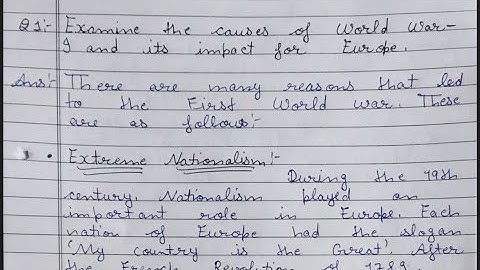 Q1:- Examine the causes of World War-
I and its impact for Europe.
Ans:- There are many reasons that led
to the First World War. These
are as follows:-
• Extreme Nationalism:-
During the 19th
century, Nationalism played an
important role in Europe. Each
nation of Europe had the slogan
'My country is the Great'. After
the French Revolution of 1789